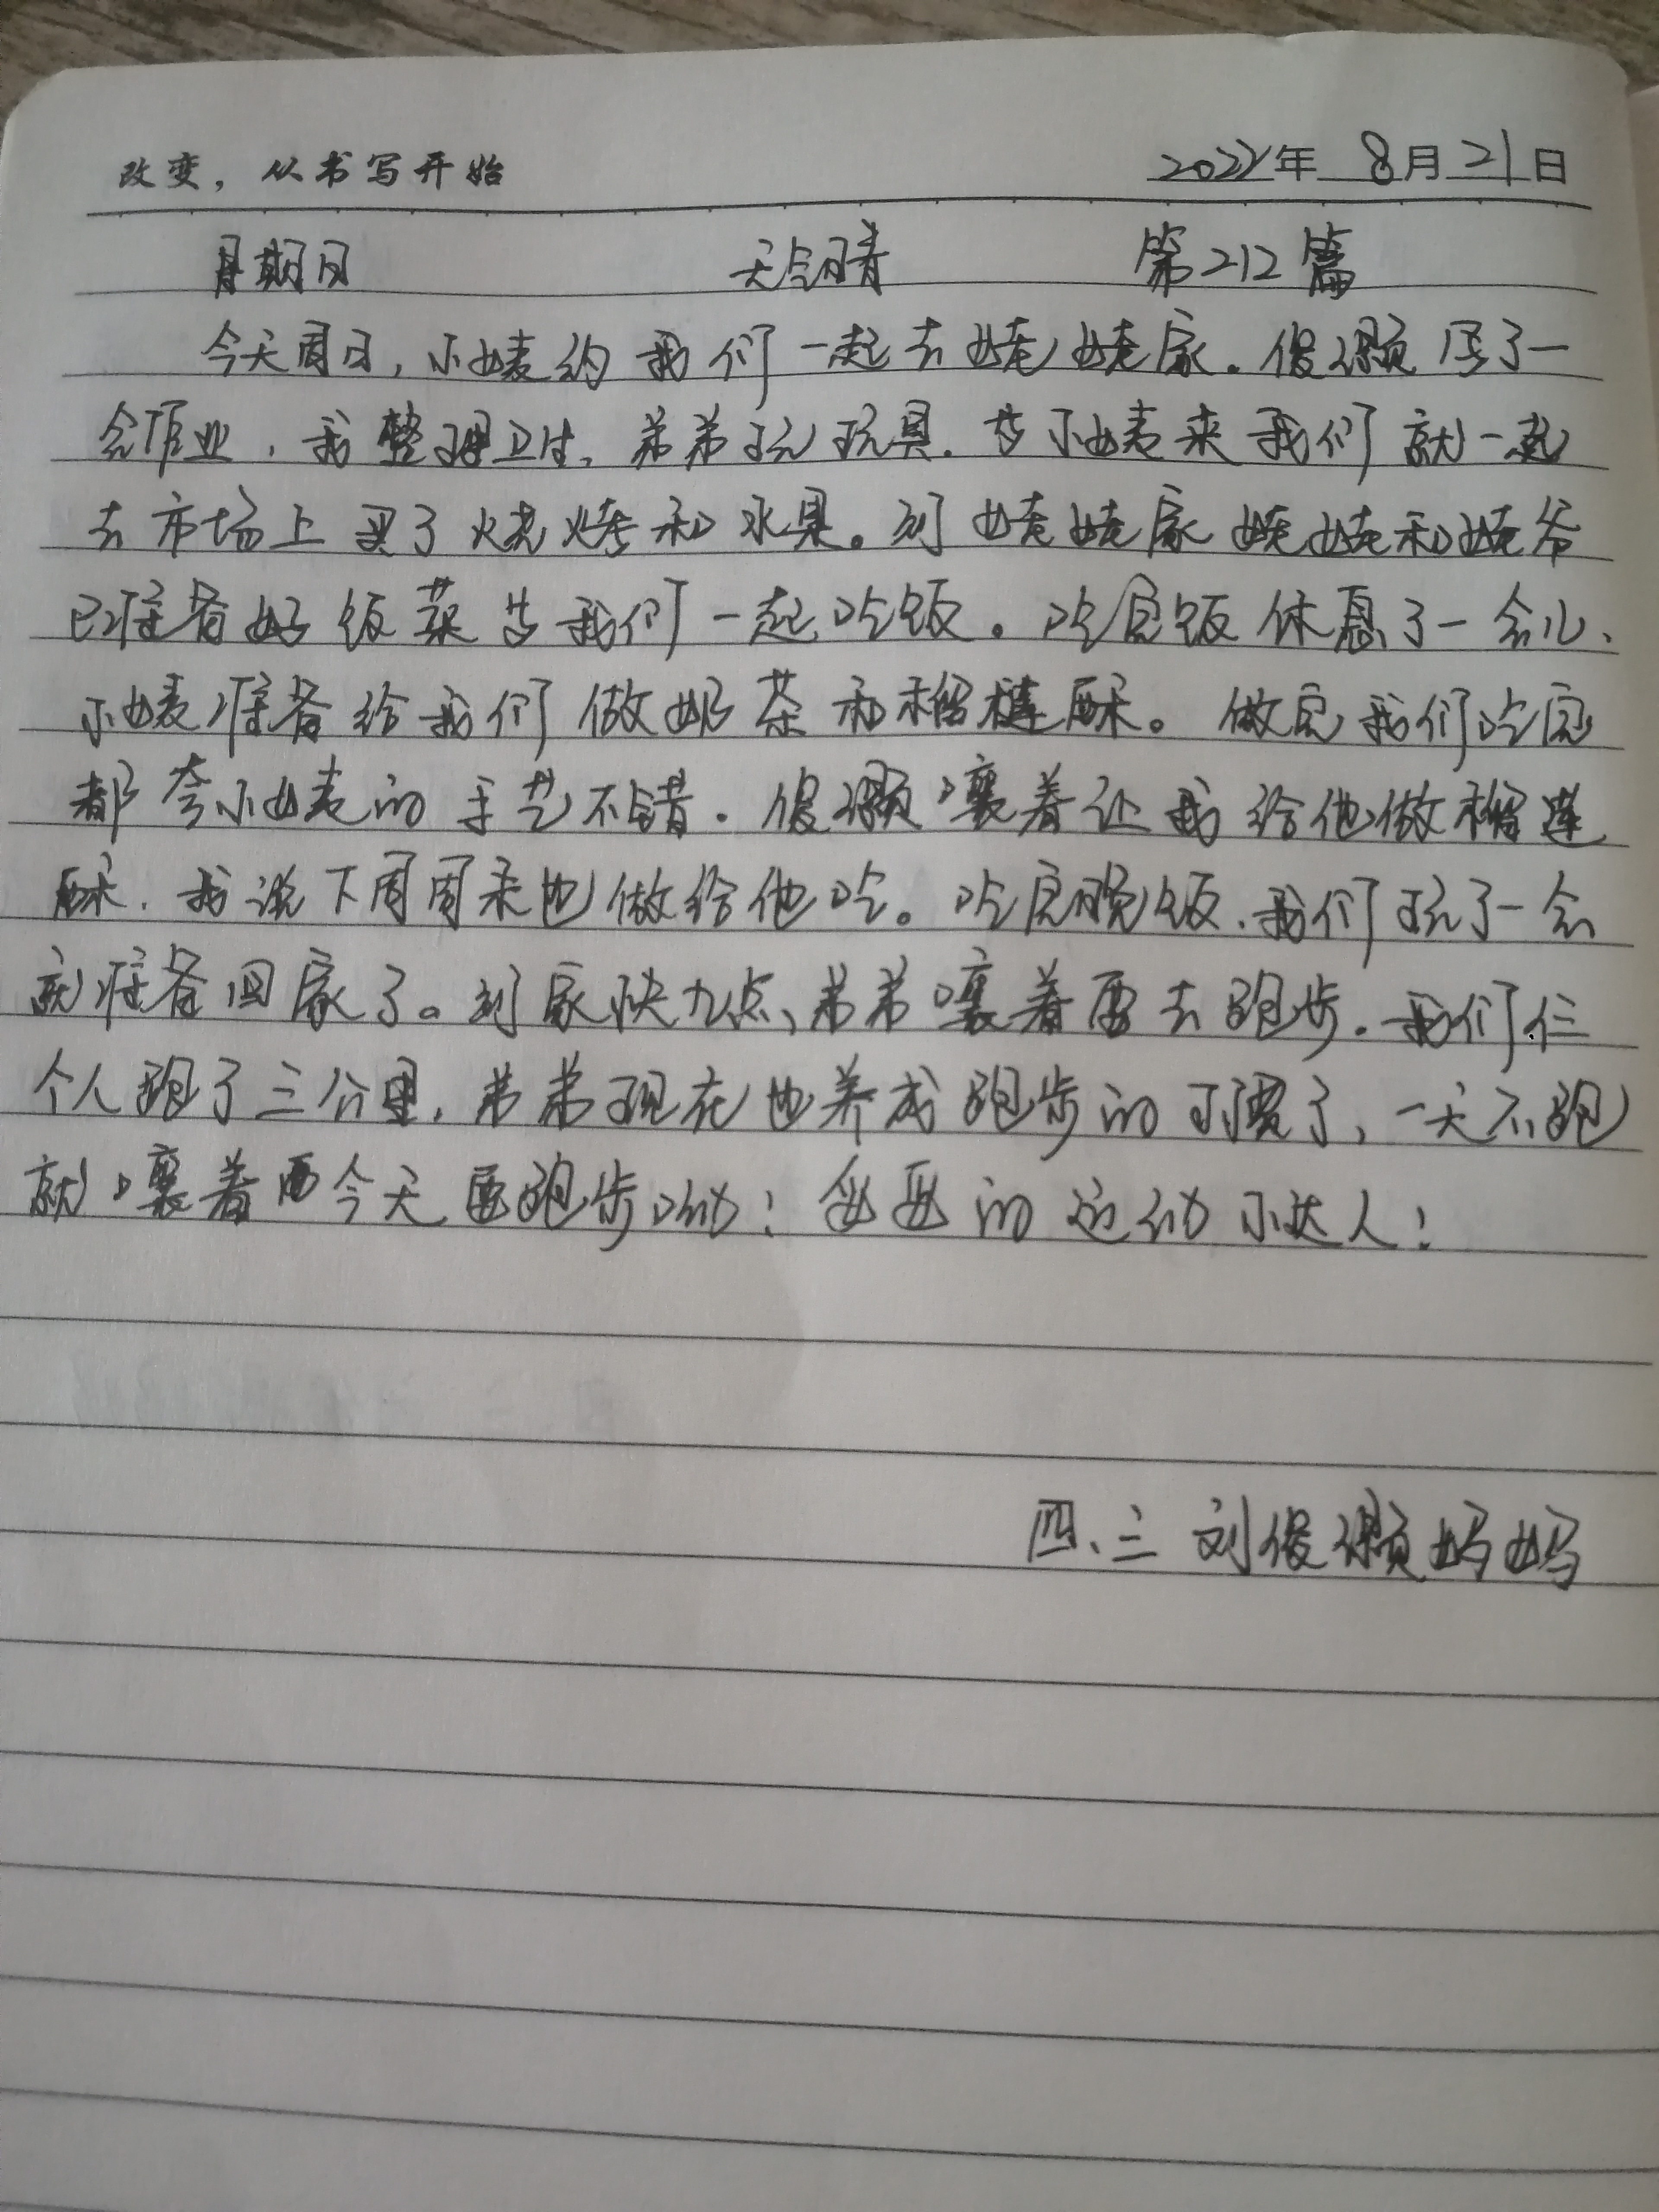 改变，从书写开始 2022年 8月21日
星期日 天气晴 第212篇
今天周日，小姨约我们一起去姥姥家。俊颢写了一
会作业，我整理卫生，弟弟玩玩具。等小姨来我们就一起
去市场上买了烧烤和水果。到姥姥家姥姥和姥爷
已准备好饭菜等我们一起吃饭。吃完饭休息了一会儿、
小姨准备给我们做奶茶和榴莲酥。做完我们吃完
都夸小姨的手艺不错。俊颢嚷着让我给他做榴莲
酥．我说下周周末也做给他吃。吃完晚饭．我们玩了一会
就准备回家了。到家快九点、弟弟嚷着要去跑步．我们仨
个人跑了三公里，弟弟现在也养成跑步的习惯了，一天不跑
就嚷着今天要跑步呦！妥妥的运动小达人！
四、三 刘俊颢妈妈